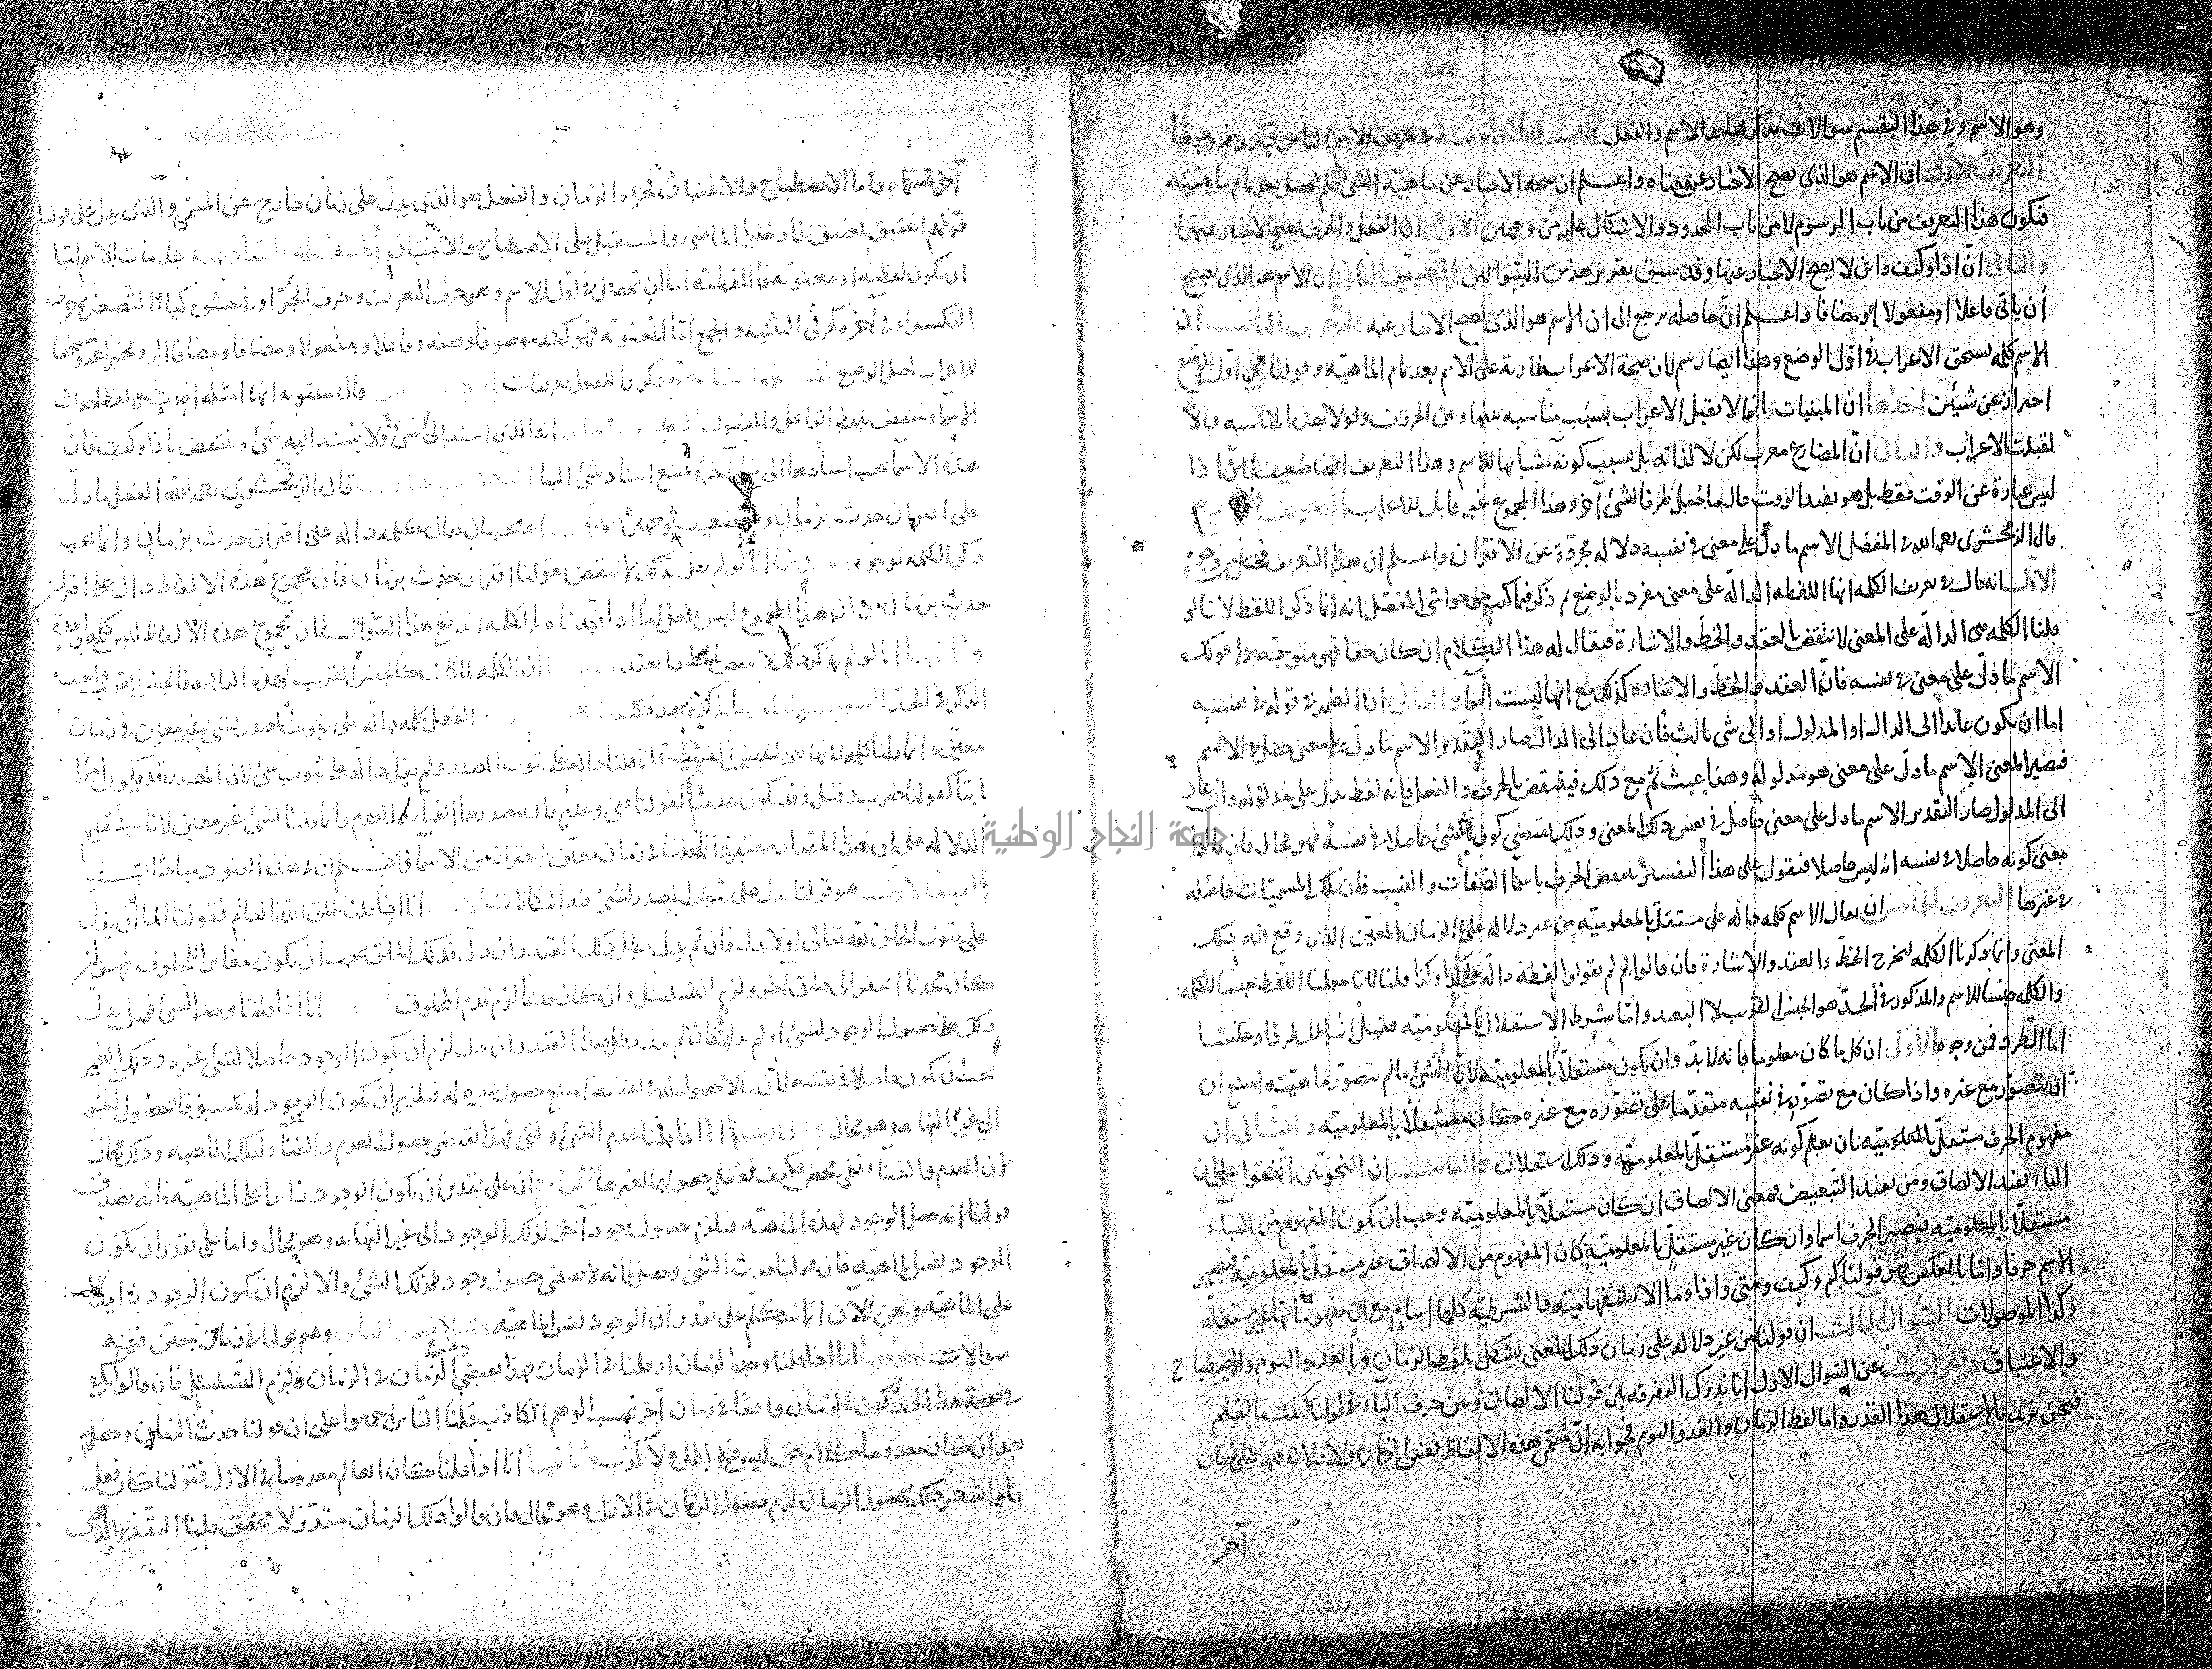 وهو الاسم وفي هذا التقسيم سوالات نذكرها حد الاسم والفعل المسئلة الخامسة في تعريف الاسم الناس ذكروا فيه وجوها
التعريف الاول ان الاسم هو الذي يصح الاخبار عن معناه واعلم ان صحة الاخبار عن ماهية الشئ حكم يحصل بعد تمام ماهيته
فيكون هذا التعريف من باب الرسوم لا من باب الحدود والاشكال عليه من وجهين الاول ان الفعل والحرف يصح الاخبار عنهما
والثاني ان اذا وكيف واين لا يصح الاخبار عنها وقد سبق تقرير هذين السؤالين التعريف الثاني ان الاسم هو الذي يصح
ان ياتي فاعلا او مفعولا او مضافا واعلم ان حاصله يرجع الى ان الاسم هو الذي يصح الاخبار عنه التعريف الثالث ان
الاسم كلمة تستحق الاعراب في اول الوضع وهذا ايضا رسم لان صحة الاعراب طارية على الاسم بعد تمام الماهية وقولنا في اول الوضع
احتراز عن شيئين احدهما ان المبنيات فانها لا تقبل الاعراب بسبب مناسبة بينها وبين الحروف ولولا هذه المناسبة والا
لقبلت الاعراب والثاني ان المضارع معرب لكن لا لذاته بل بسبب كونه مشابها للاسم وهذا التعريف ايضا ضعيف لان اذا
ليس عبارة عن الوقت فقط بل هو بقيد الوقت حال ما جعل ظرفا لشئ آخر وهذا المجموع غير قابل للاعراب التعريف الرابع
قال الزمخشري رحمه الله في المفصل الاسم ما دل على معنى في نفسه دلالة مجردة عن الاقتران واعلم ان هذا التعريف مختل من وجوه
الاول انه قال في تعريف الكلمة انها اللفظة الدالة على معنى مفرد بالوضع ثم ذكر فيما كتب من حواشي المفصل انه انما ذكر اللفظ لانا لو
قلنا الكلمة هي الدالة على المعنى لانتقض بالعقد والخط والاشارة فيقال له هذا الكلام ان كان حقا فهو متوجه على قولك
الاسم ما دل على معنى في نفسه فان العقد والخط والاشارة كذلك مع انها ليست اسما والثاني ان الضمير في قوله في نفسه
اما ان يكون عائدا الى الدال او المدلول او الى شئ ثالث فان عاد الى الدال صار التقدير الاسم ما دل على معنى حصل في الاسم
فيصير المعنى الاسم ما دل على معنى هو مدلوله وهذا عبث ثم مع ذلك فينتقض بالحرف والفعل فانه لفظ يدل على مدلوله وان عاد
الى المدلول صار التقدير الاسم ما دل على معنى حاصل في نفس ذلك المعنى وذلك يقتضي كون الشئ حاصلا في نفسه فهو محال فان قالوا
معنى كونه حاصلا في نفسه انه ليس حاصلا فنقول على هذا التفسير ينتقض الحرف باسما الصفات والنسب فان تلك المسميات حاصلة
في غيرها التعريف الخامس ان يقال الاسم كلمة دالة على مستقل بالمعلومية من غير دلالة على الزمان المعين الذي وقع فيه ذلك
المعنى وانما ذكرنا الكلمة ليخرج الخط والعقد والاشارة فان قالوا لم لم تقولوا لفظة دالة على كذا وكذا قلنا لانا جعلنا اللفظ جنسا للكلمة
والكلمة جنسا للاسم والمذكور في الحد هو الجنس القريب لا البعيد واما شرط الاستقلال بالمعلومية فقيل انه باطل طردا وعكسا
اما الطرد فمن وجوه الاول ان كل ما كان معلوما فانه لا بد وان يكون مستقلا بالمعلومية لان الشئ ما لم تتصور ماهيته امتنع ان
تتصور مع غيره واذا كان مع تصوره في نفسه متقدما على تصوره مع غيره كان مستقلا بالمعلومية والثاني ان
مفهوم الحرف مستقل بالمعلومية بان يعلم كونه غير مستقل بالمعلومية وذلك استقلال والثالث ان النحويين اتفقوا على ان
الباء تفيد الالصاق ومن تفيد التبعيض فمعنى الالصاق ان كان مستقلا بالمعلومية وجب ان يكون المفهوم من الباء
مستقلا بالمعلومية فيصير الحرف اسما وان كان غير مستقل بالمعلومية كان المفهوم من الالصاق غير مستقل بالمعلومية فيصير
الاسم حرفا واما بالعكس فهو قولنا كم وكيف ومتى واذا وما الاستفهامية والشرطية كلها اسام مع ان مفهوماتها غير مستقلة
وكذا الموصولات السؤال الثالث ان قولنا من غير دلالة على زمان ذلك المعنى يشكل بلفظ الزمان وبالغد واليوم والاصطباح
والاغتباق والجواب عن السؤال الاول انا ندرك التفرقة بين قولنا الالصاق وبين حرف الباء في قولنا كتبت بالقلم
فنحن نريد بالاستقلال هذا القدر واما لفظ الزمان والغد واليوم فجوابه ان مسمى هذه الالفاظ نفس الزمان ولا دلالة فيها على زمان
آخر
آخر لمسماه واما الاصطباح والاغتباق فجزءه الزمان والفعل هو الذي يدل على زمان خارج عن المسمى والذي يدل على قولنا
قولهم اغتبق يغتبق فادخلوا الماضي والمستقبل على الاصطباح والاغتباق المسئلة السادسة علامات الاسم اما
ان يكون لفظية او معنوية فاللفظية اما ان تحصل في اول الاسم وهو حرف التعريف وحرف الجر او في حشوه كياء التصغير وحرف
التكسير او في آخره كحرفي التثنية والجمع اما المعنوية فهو كونه موصوفا وصفة وفاعلا ومفعولا ومضافا ومضافا اليه ومخبرا عنه ومستحقا
للاعراب باصل الوضع المسئلة السابعة ذكروا للفعل تعريفات قال سيبويه انها امثلة اخذت من لفظ احداث
الاسما وينتقض بلفظ الفاعل والمفعول انه الذي اسند الى شئ ولا يسند اليه شئ وينتقض باذا وكيف فان
هذه الاسما يجب اسنادها الى شئ آخر ويمتنع اسناد شئ اليها قال الزمخشري رحمه الله الفعل ما دل
على اقتران حدث بزمان وهو ضعيف لوجهين انه يجب ان يقال كلمة دالة على اقتران حدث بزمان وانما يجب
ذكر الكلمة لوجوه انا لو لم نقل بذلك لانتقض بقولنا اقتران حدث بزمان فان مجموع هذه الالفاظ دال على اقتران
حدث بزمان مع ان هذا المجموع ليس بفعل اما اذا قيدناه بالكلمة اندفع هذا السؤال لان مجموع هذه الالفاظ ليس كلمة واحدة
وثانيها انا لو لم نذكر ذلك لانتقض بالخط والعقد ان الكلمة لما كانت كالجنس القريب لهذه الثلاثة فالجنس القريب واجب
الذكر في الحد ما نذكره بعد ذلك الفعل كلمة دالة على ثبوت المصدر لشئ غير معين في زمان
معين وانما قلنا كلمة لانها هي الجنس القريب وانما قلنا دالة على ثبوت المصدر ولم نقل دالة على ثبوت شئ لان المصدر قد يكون امرا
ثابتا كقولنا ضرب وقتل وقد يكون عدميا كقولنا فنى وعدم فان مصدرهما الفناء والعدم وانما قلنا لشئ غير معين لانا سنقيم
الدلالة على ان هذا المقدار معتبر وانما قلنا في زمان معين احترازا من الاسما فاعلم ان في هذه القيود مباحثات
القيد الاول هو قولنا يدل على ثبوت المصدر لشئ فيه اشكالات انا اذا قلنا خلق الله العالم فقولنا اما ان يدل
على ثبوت الخلق لله تعالى او لا يدل فان لم يدل بطل ذلك القيد وان دل فذلك الخلق يجب ان يكون مغايرا للمخلوق فهو ان
كان محدثا افتقر الى خلق آخر ولزم التسلسل وان كان قديما لزم قدم المخلوق انا اذا قلنا وجد الشئ فهل يدل
ذلك على حصول الوجود لشئ او لم يدل فان لم يدل بطل هذا القيد وان دل لزم ان يكون الوجود حاصلا لشئ غيره وذلك الغير
يجب ان يكون حاصلا في نفسه لان ما لا حصول له في نفسه امتنع حصول غيره له فيلزم ان يكون الوجود له مسبوقا بحصول آخر
الى غير النهاية وهو محال والثالث انا اذا قلنا عدم الشئ وفنى فهذا يقتضي حصول العدم والفناء لتلك الماهية وذلك محال
لان العدم والفناء نفي محض فكيف يعقل حصولهما لغيرها الرابع ان على تقدير ان يكون الوجود زائدا على الماهية فانه يصدق
قولنا انه حصل الوجود لهذه الماهية فيلزم حصول وجود آخر لذلك الوجود الى غير النهاية وهو محال واما على تقدير ان يكون
الوجود نفس الماهية فان قولنا حدث الشئ وحصل فانه لا يقتضي حصول وجود لذلك الشئ والا لزم ان يكون الوجود زائدا
على الماهية ونحن الآن انما نتكلم على تقدير ان الوجود نفس الماهية واما القيد الثاني وهو قولنا في زمان معين ففيه
سوالات احدها انا اذا قلنا وجد الزمان او فنى الزمان فهذا يقتضي الزمان في الزمان ولزم التسلسل فان قالوا يكفي
في صحة هذا الحد كون الزمان واقعا في زمان آخر بحسب الوهم الكاذب قلنا الناس اجمعوا على ان قولنا حدث الزمان وحصل
بعد ان كان معدوما كلام حق ليس فيه باطل ولا كذب وثانيها انا اذا قلنا كان العالم معدوما في الازل فقولنا كان فعل
فلو اشعر ذلك بحصول الزمان لزم حصول الزمان في الازل وهو محال فان قالوا ذلك الزمان مقدر لا محقق قلنا التقدير الذهني
جامعة النجاح الوطنية